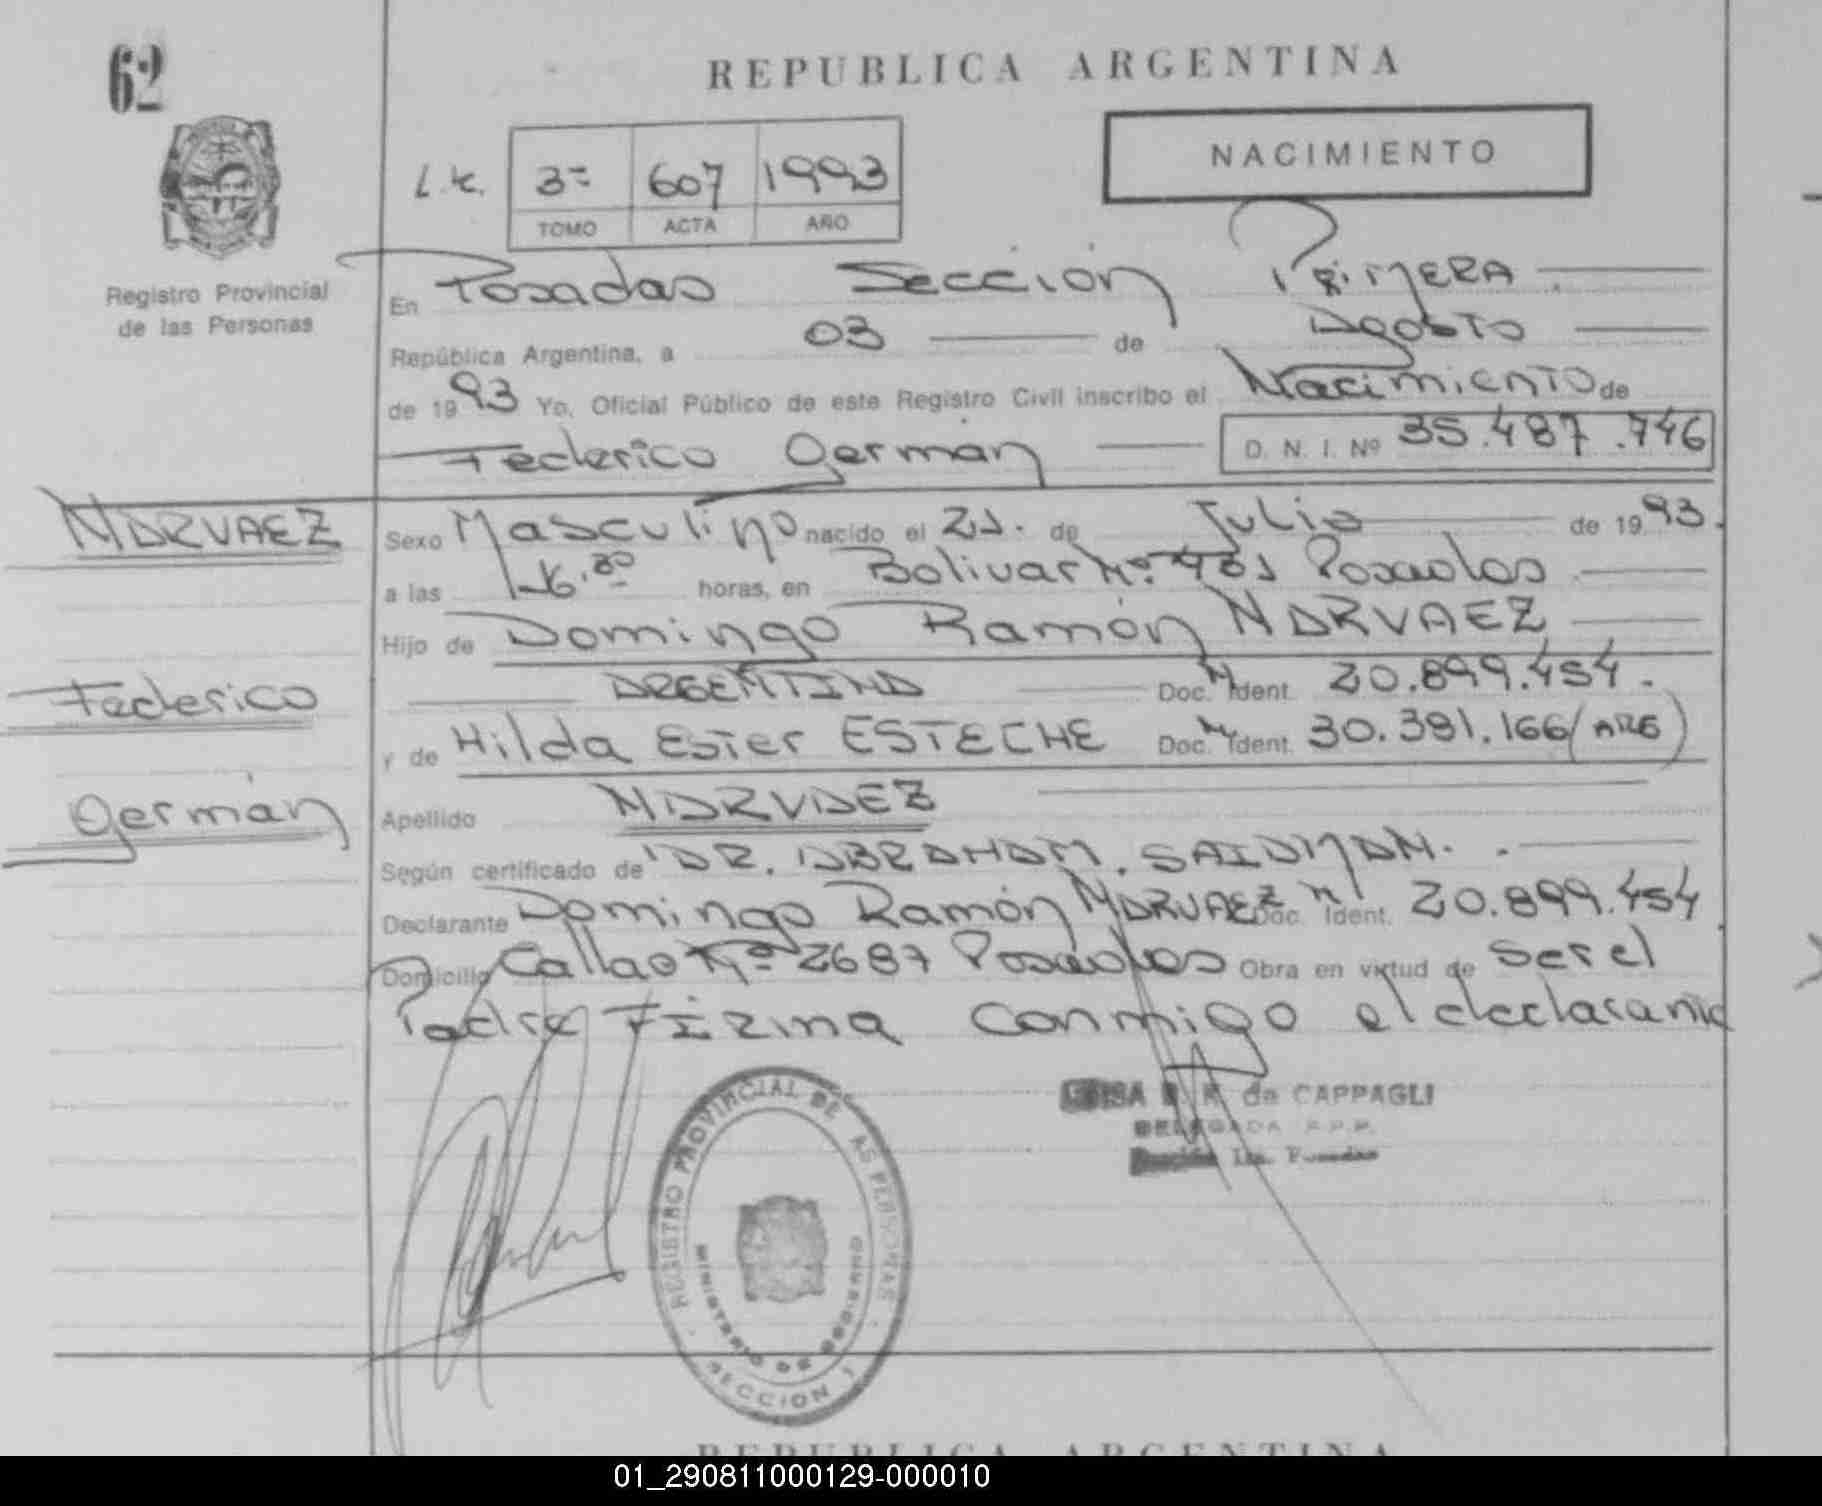 62
REPUBLICA ARGENTINA
NACIMIENTO
3= 607 1993
TOMO ACTA AÑO
Registro Provincial
de las Personas
En Posadas Sección Primera
República Argentina, a 03 de Agosto
de 1993 Yo, Oficial Público de este Registro Civil inscribo el Nacimiento de
Federico Germán D. N. I. Nº 35.487.746
NARVAEZ
Federico
Germán
Sexo Masculino nacido el 21. de Julio de 1993.
a las 16.30 horas, en Bolivar Nº 431 Posadas
Hijo de Domingo Ramón NARVAEZ
ARGENTINA Doc. N Ident. 20.899.454.
y de Hilda Ester ESTECHE Doc. N Ident. 30.391.166 (ARG)
Apellido NARVAEZ
Según certificado de DR. ABRAHAM. SAIDMAN.
Declarante Domingo Ramón NARVAEZ Doc. N Ident. 20.899.454
Domicilio Callao Nº 2687 Posadas Obra en virtud de ser el
Padre Firma conmigo el declarante
de CAPPAGLI
DELEGADA R.P.P.
REGISTRO PROVINCIAL DE LAS PERSONAS
MINISTERIO DE GOBIERNO
SECCION 1
REPUBLICA ARGENTINA
01_290811000129-000010